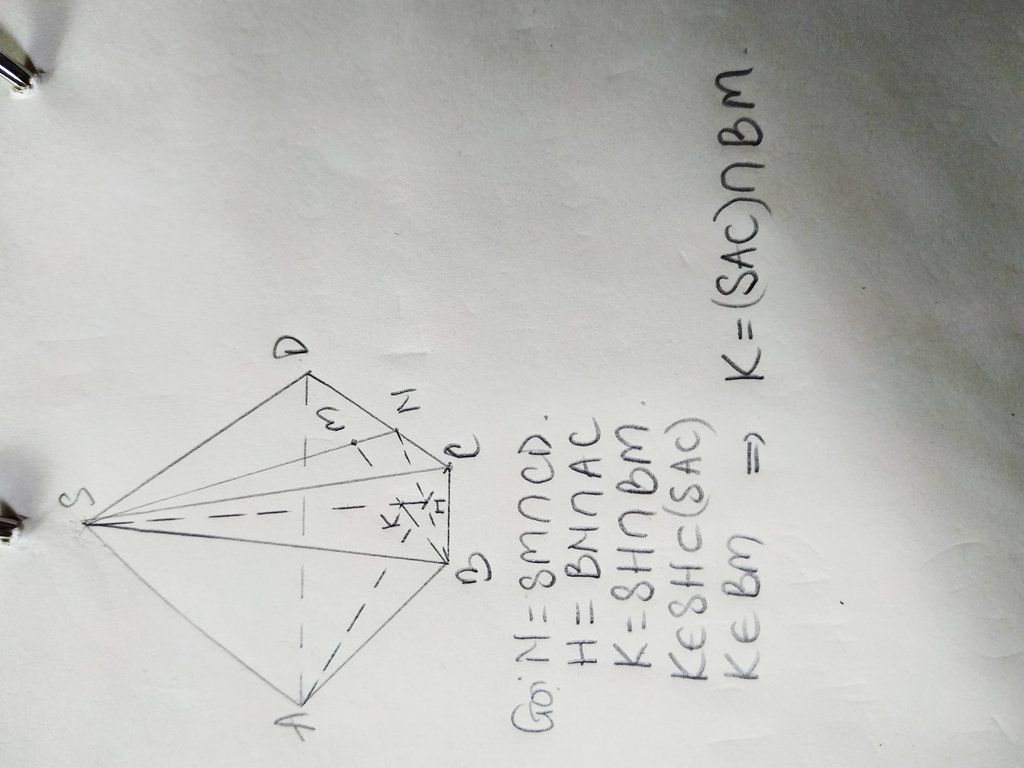 S
A
D
M
N
K
H
B
C
Gọi N = SM∩CD.
H = BN∩AC
K = SH∩BM.
K∈SH⊂(SAC)
K∈BM ⇒ K=(SAC)∩BM.